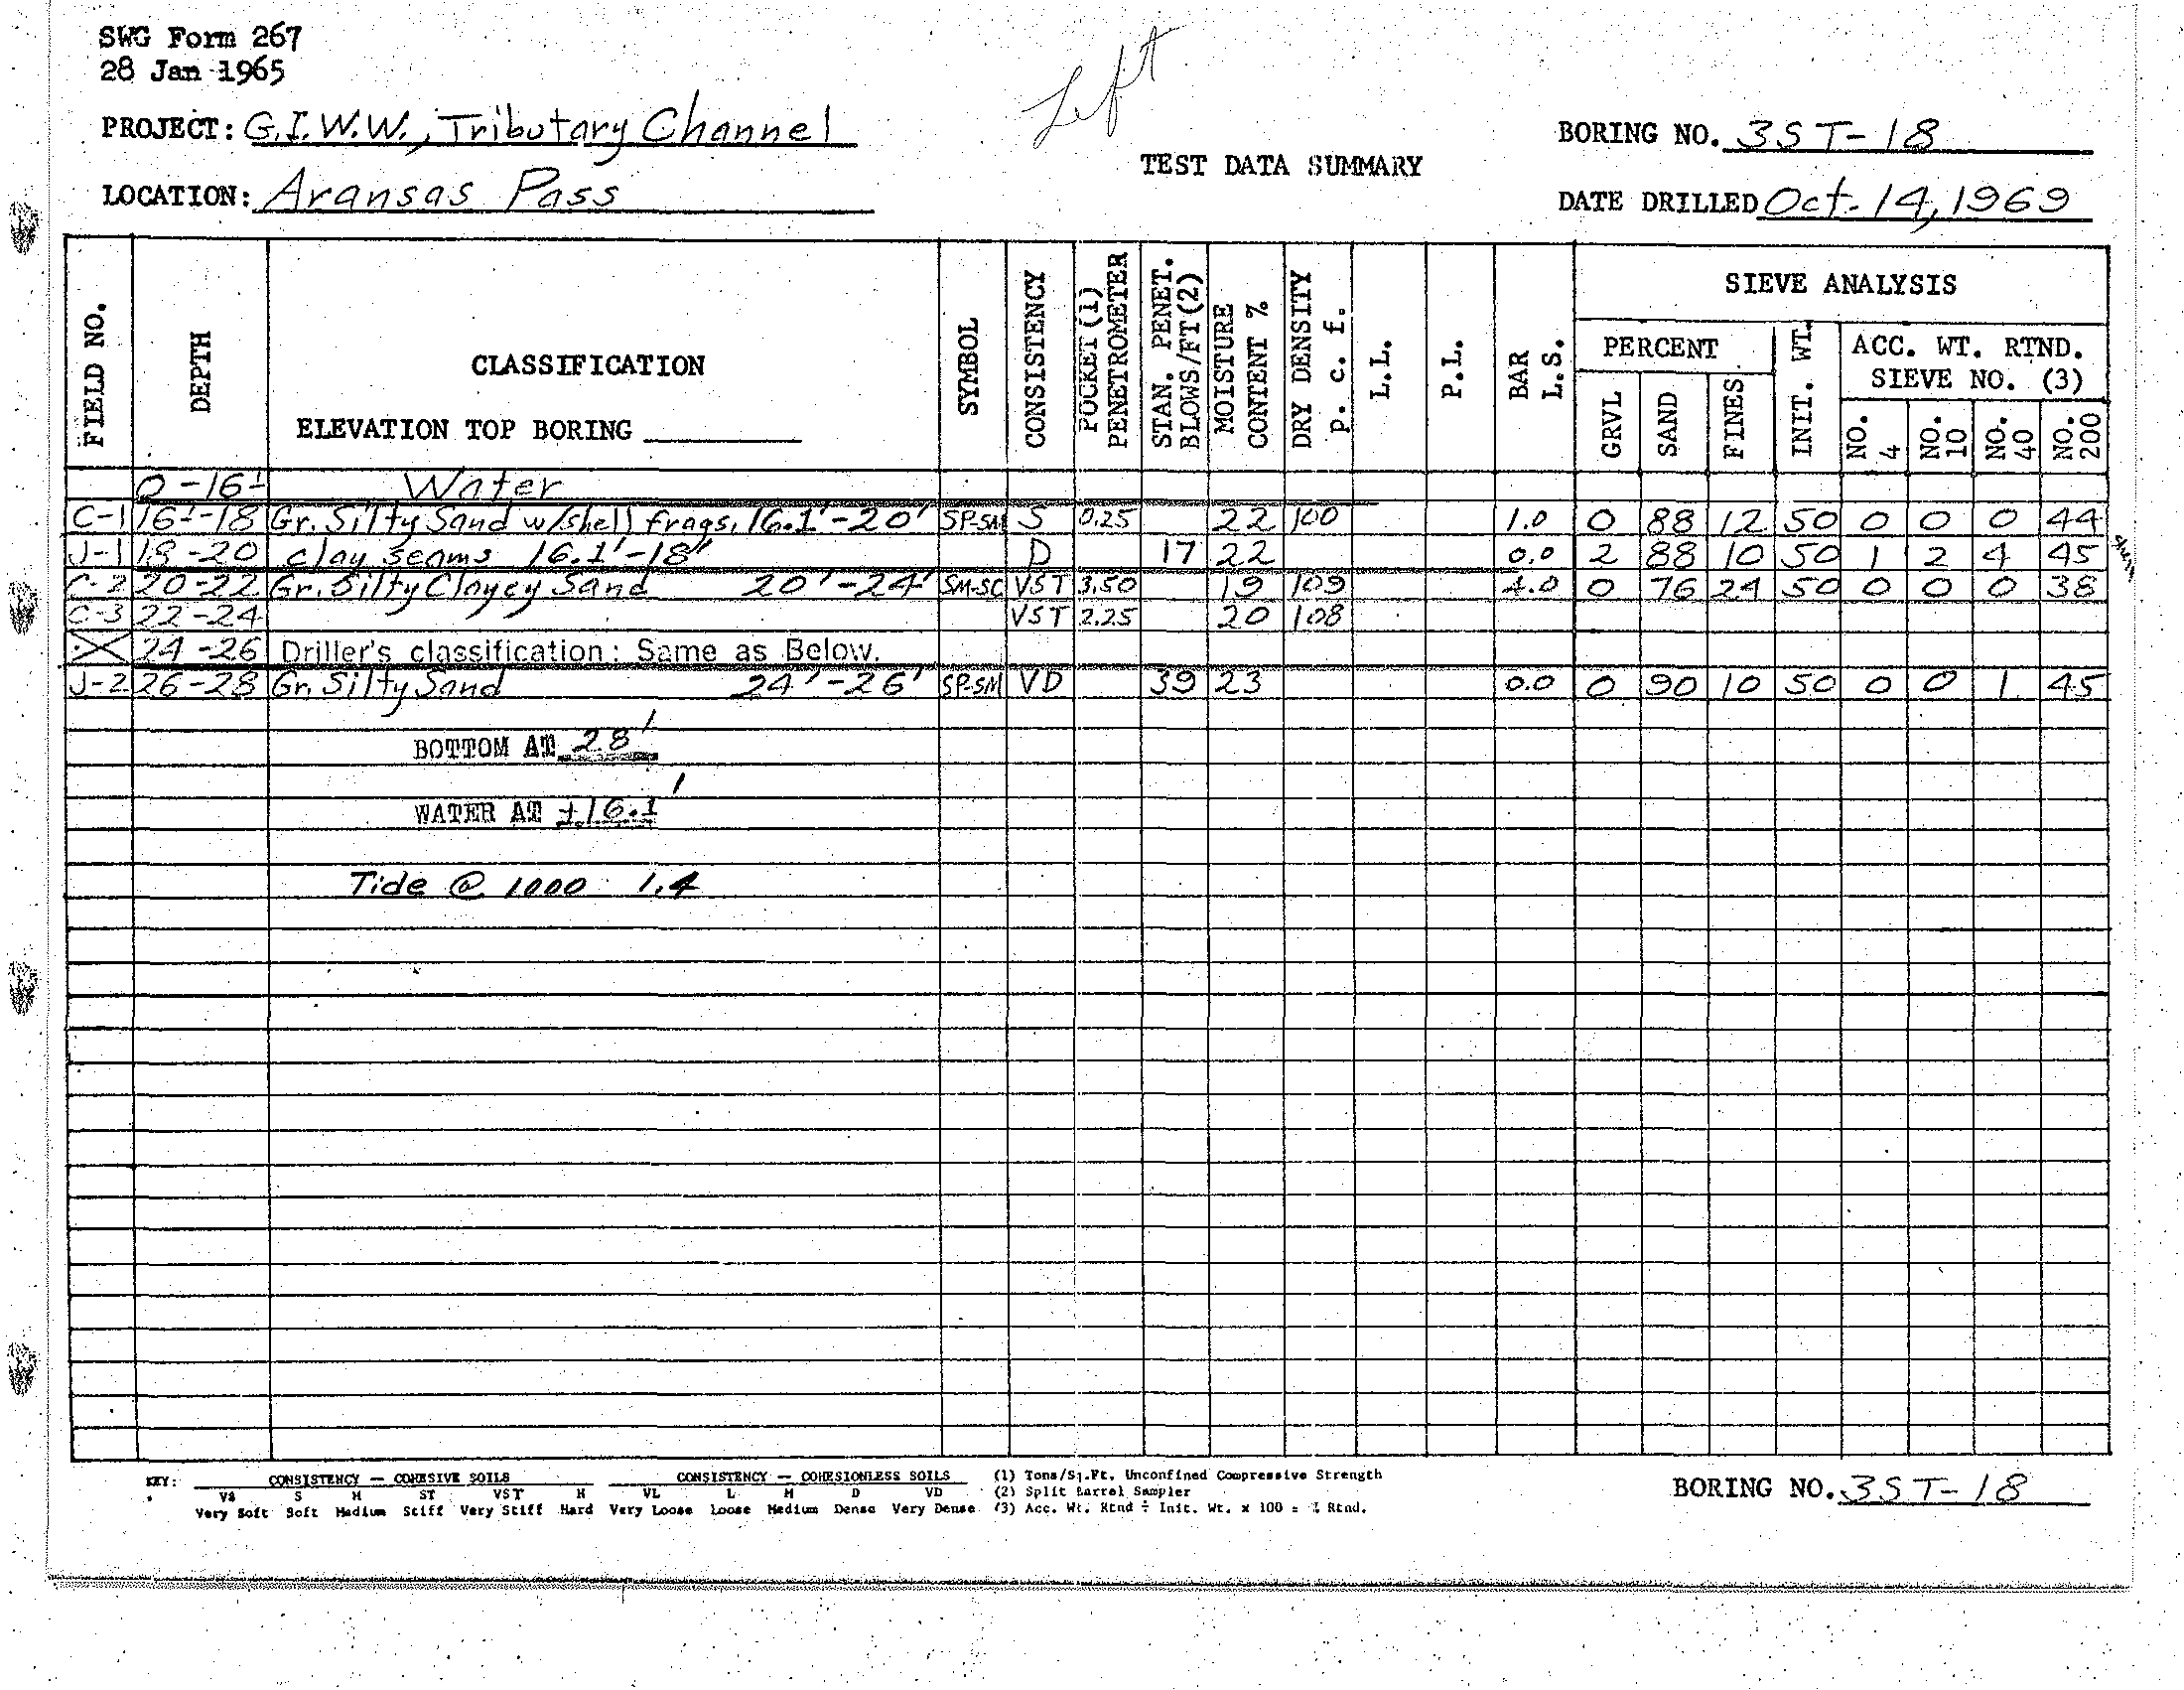 SWG Form 267
28 Jan 1965
Left
PROJECT: G.I.W.W., Tributary Channel
BORING NO. 3ST-18
TEST DATA SUMMARY
LOCATION: Aransas Pass
DATE DRILLED Oct. 14, 1969
FIELD NO. DEPTH CLASSIFICATION SYMBOL CONSISTENCY POCKET (1) PENETROMETER STAN. PENET. BLOWS/FT(2) MOISTURE CONTENT % DRY DENSITY p. c. f. L.L. P.L. BAR L.S. SIEVE ANALYSIS
PERCENT INIT. WT. ACC. WT. RTND. SIEVE NO. (3)
ELEVATION TOP BORING
GRVL SAND FINES NO. 4 NO. 10 NO. 40 NO. 200
0-16.1 Water
C-1 16.1-18 Gr. Silty Sand w/shell frags, 16.1'-20' SP-SM S 0.25 22 100 1.0 0 88 12 50 0 0 0 44
J-1 18-20 clay seams 16.1'-18' D 17 22 0.0 2 88 10 50 1 2 4 45
C-2 20-22 Gr. Silty Clayey Sand 20'-24' SM-SC VST 3.50 19 109 4.0 0 76 24 50 0 0 0 38
C-3 22-24 VST 2.25 20 108
24-26 Driller's classification: Same as Below.
J-2 26-28 Gr. Silty Sand 24'-26' SP-SM VD 39 23 0.0 0 90 10 50 0 0 1 45
BOTTOM AT 28'
WATER AT ±16.1'
Tide @ 1000 1.4
KEY: CONSISTENCY — COHESIVE SOILS CONSISTENCY — COHESIONLESS SOILS (1) Tons/Sq.Ft. Unconfined Compressive Strength
VS S M ST VST H VL L M D VD (2) Split Barrel Sampler
Very Soft Soft Medium Stiff Very Stiff Hard Very Loose Loose Medium Dense Very Dense (3) Acc. Wt. Rtnd ÷ Init. Wt. x 100 = % Rtnd.
BORING NO. 3ST-18